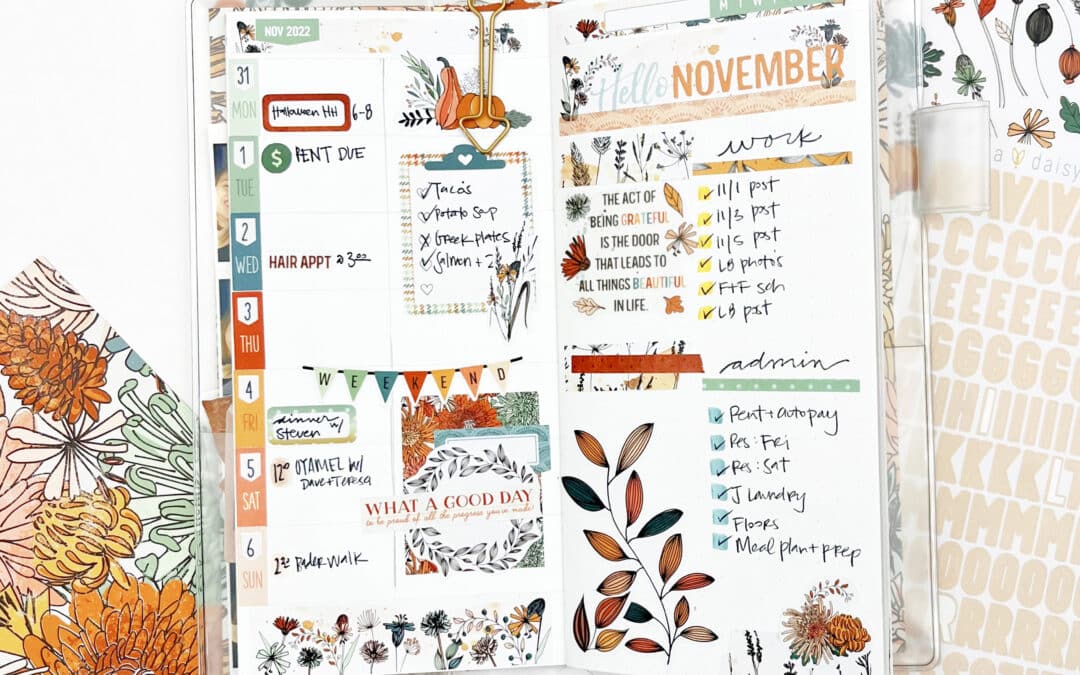 NOV 2022
31
MON
Halloween HH 6-8
1
TUE
$ RENT DUE
2
WED
HAIR APPT @ 3:00
3
THU
Tacos
Potato Soup
Greek plates
Salmon + 2
WEEKEND
4
FRI
dinner w/
Steven
5
SAT
12:00 OYAMEL W/
Dave + Teresa
6
SUN
2:30 Baderwalk
WHAT A GOOD DAY
to be proud of all the progress you've made!
M T W
Hello NOVEMBER
work
THE ACT OF
BEING GRATEFUL
IS THE DOOR
THAT LEADS TO
ALL THINGS BEAUTIFUL
IN LIFE.
11/1 post
11/3 post
11/5 post
LB photos
F+F sch
LB post
admin
Rent + autopay
Res: Fri
Res: Sat
J Laundry
Floors
Meal plan + prep
a daisy